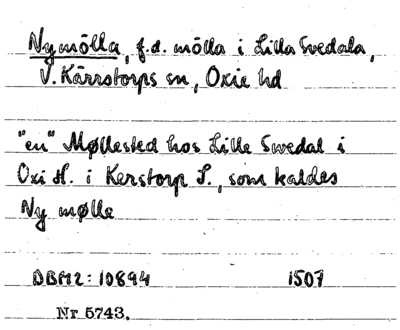 Nymölla, f.d. mölla i Lilla Svedala,
V. Kärrstorps sn, Oxie hd
"en" Møllested hos Lille Swedal i
Oxi H. i Kerstorp S., som kaldes
Ny mølle
DBM2: 10894 1507
Nr 5743.